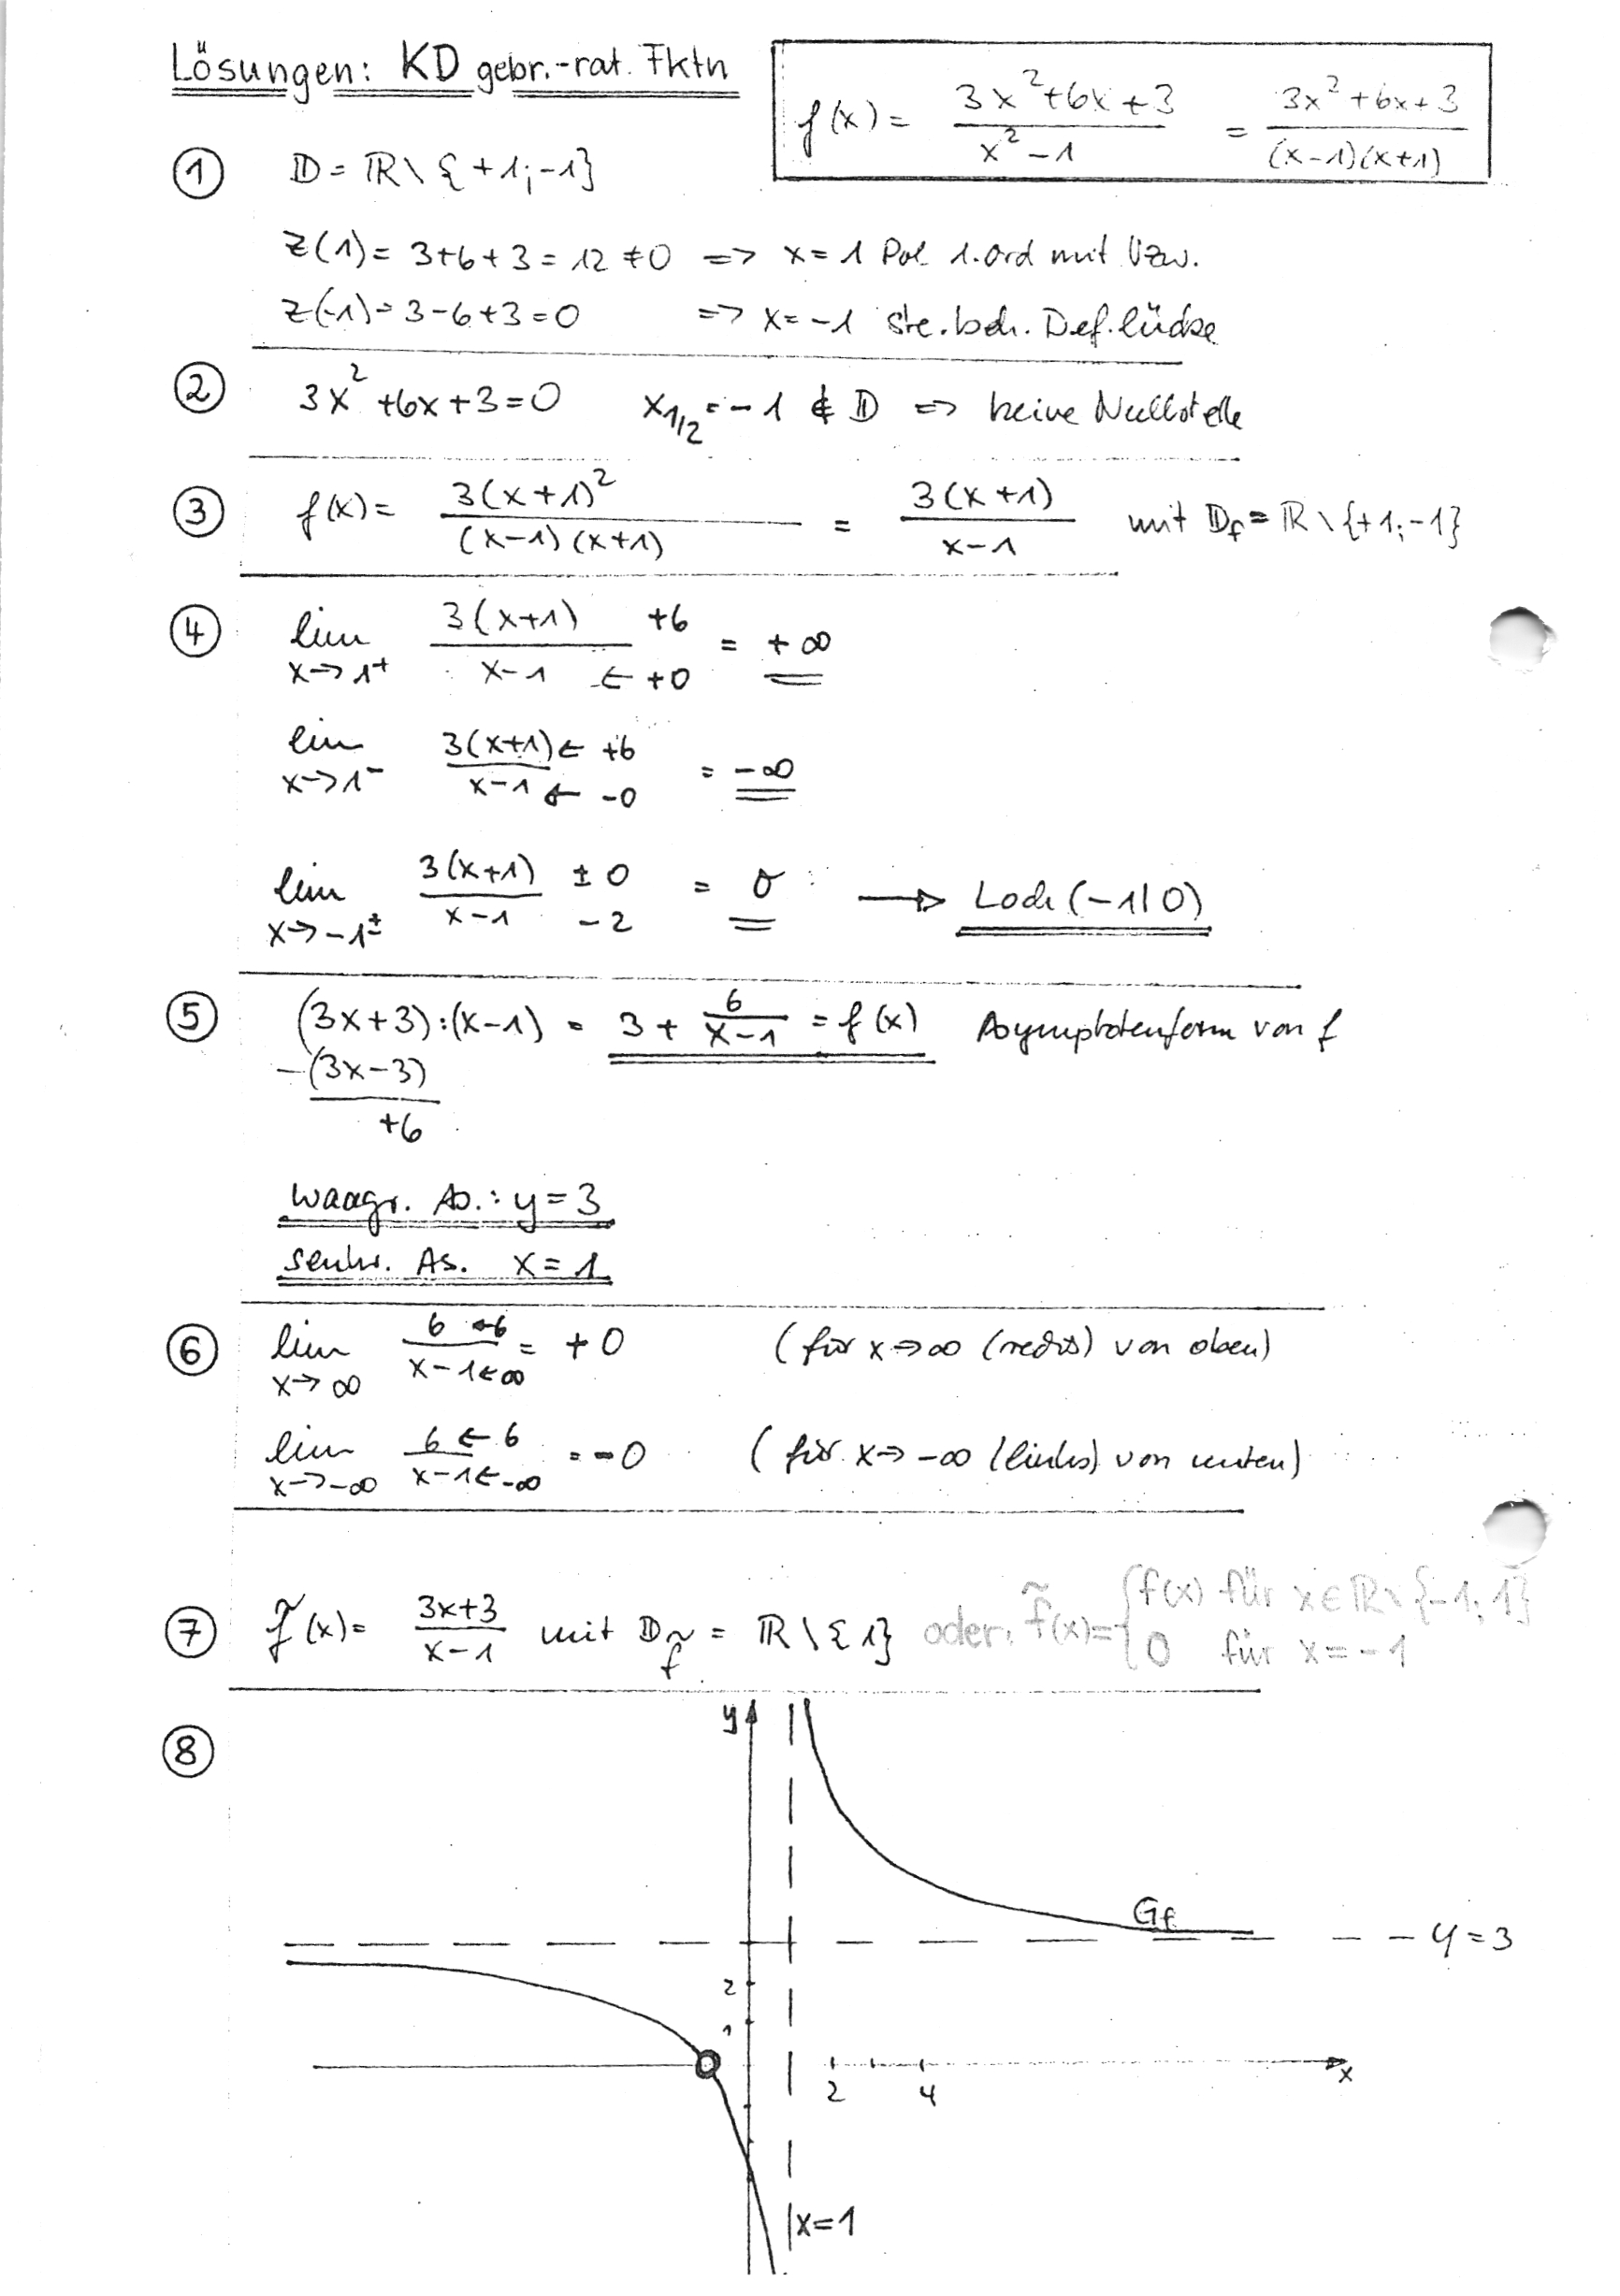 Lösungen: KD gebr.-rat. Fktn
f(x) = (3x²+6x+3)/(x²-1) = (3x²+6x+3)/((x-1)(x+1))
① D = ℝ\{+1;-1}
z(1) = 3+6+3 = 12 ≠ 0 => x = 1 Pol 1.Ord mit Vzw.
z(-1) = 3-6+3 = 0 => x = -1 ste.beh. Def.lücke
② 3x²+6x+3=0 x₁/₂ = -1 ∉ D => keine Nullstelle
③ f(x) = 3(x+1)²/((x-1)(x+1)) = 3(x+1)/(x-1) mit D_f = ℝ\{+1;-1}
④ lim x→1⁺ 3(x+1)/(x-1) +6 ← +0 = +∞
lim x→1⁻ 3(x+1)/(x-1) ← +6 ← -0 = -∞
lim x→-1± 3(x+1)/(x-1) ±0 -2 = 0 → Loch (-1|0)
⑤ (3x+3):(x-1) = 3 + 6/(x-1) = f(x) Asymptotenform von f
-(3x-3)
+6
waagr. As.: y=3
senkr. As. x=1
⑥ lim x→∞ 6/(x-1) ←6 ←∞ = +0 (für x→∞ (rechts) von oben)
lim x→-∞ 6/(x-1) ←6 ←-∞ = -0 (für x→-∞ (links) von unten)
⑦ f̃(x) = (3x+3)/(x-1) mit D_f̃ = ℝ\{1} oder: f̃(x) = { f(x) für x∈ℝ\{-1;1}
0 für x=-1
⑧ y
G_f
y=3
2
1
2 4 x
x=1